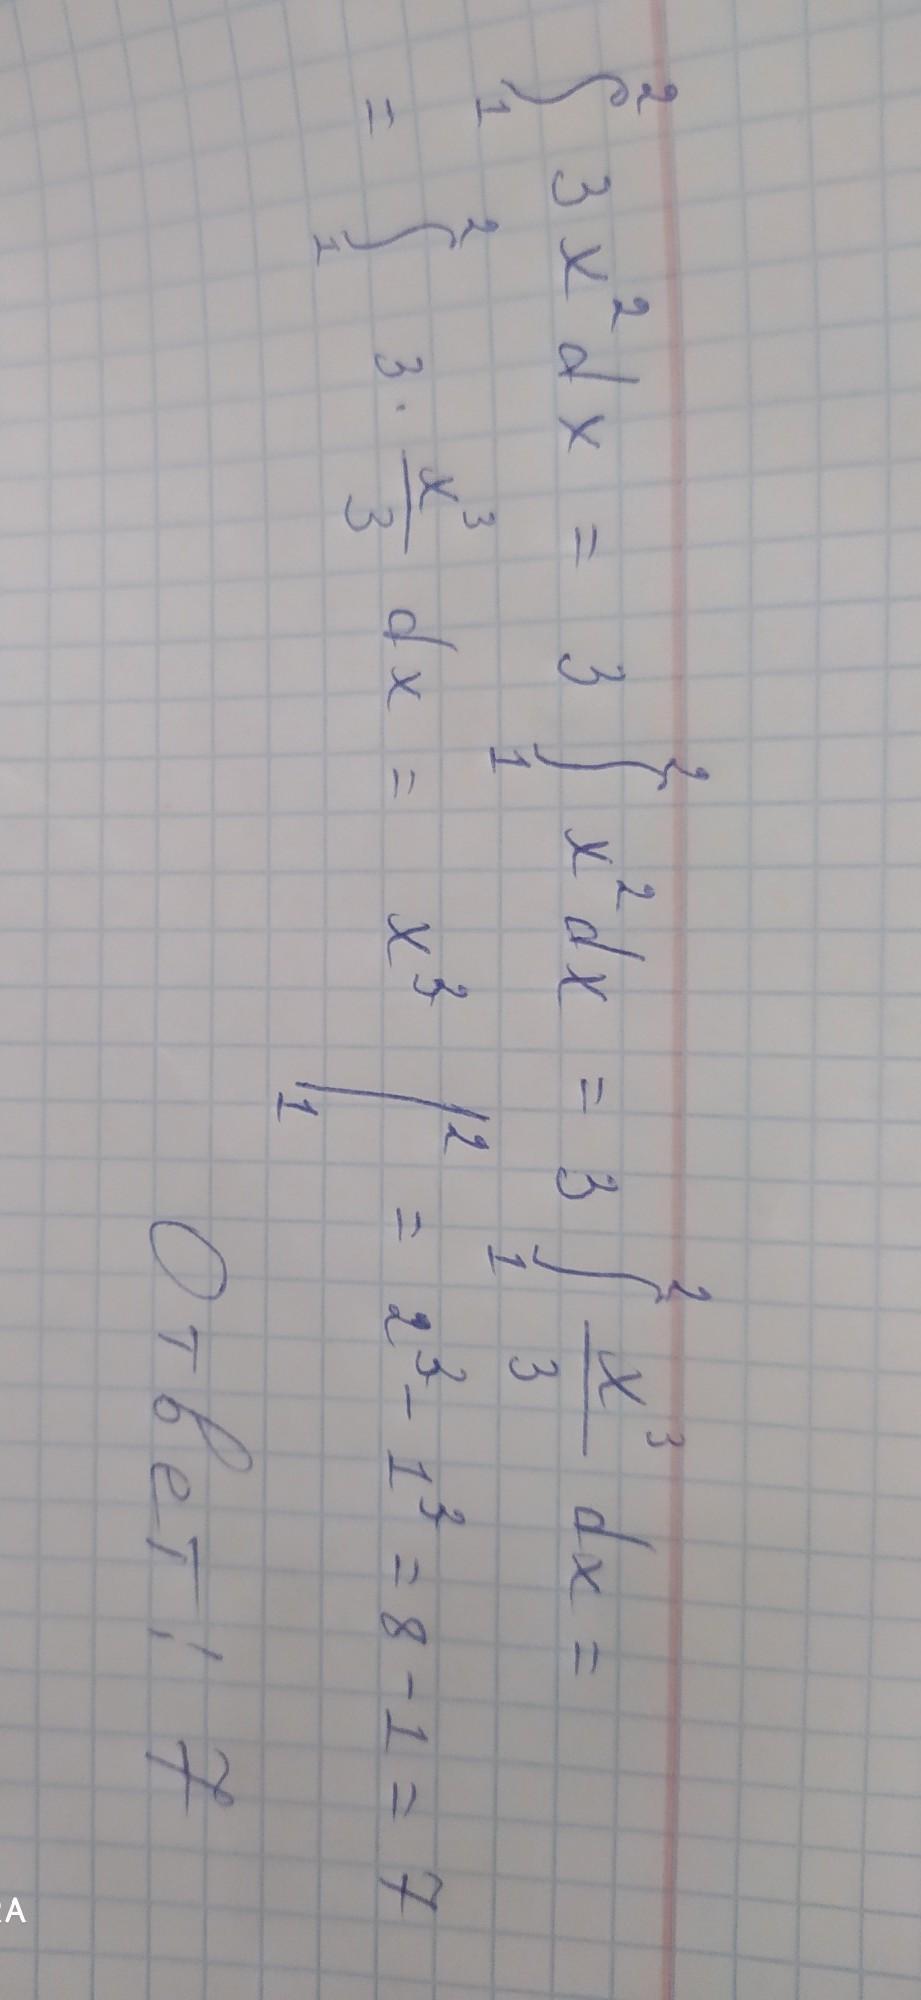 ∫₁² 3x²dx = 3 ∫₁² x²dx = 3 ∫₁² x³/3 dx =
= ∫₁² 3 · x³/3 dx = x³ |₁² = 2³ - 1³ = 8 - 1 = 7
Ответ: 7